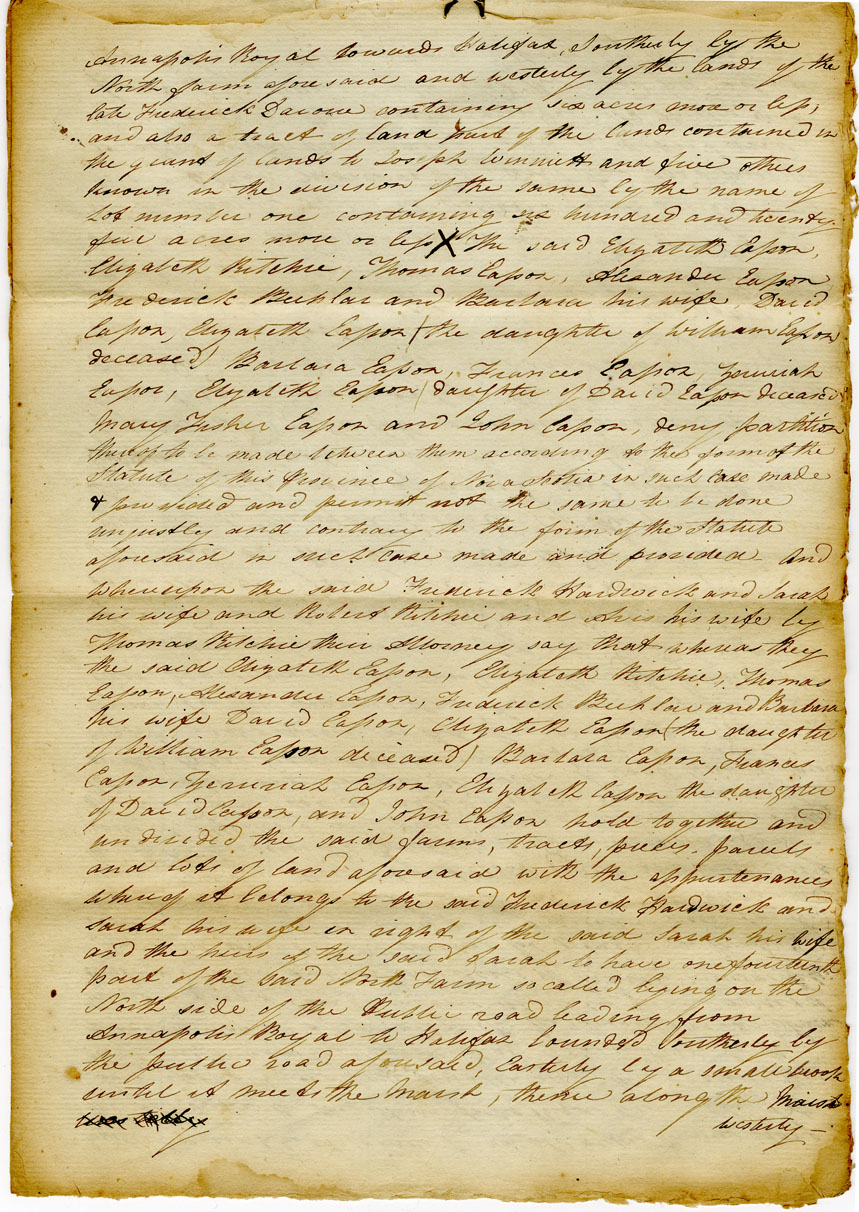 Annapolis Royal towards Halifax, Southerly by the
North farm aforesaid and westerly by the lands of the
late Frederick Davoue containing six acres more or less,
and also a tract of land part of the lands contained in
the grant of lands to Joseph Winniett and five others
known in the division of the same by the name of
Lot number one containing six hundred and twenty
five acres more or less X The said Elizabeth Easson,
Elizabeth Ritchie, Thomas Easson, Alexander Easson
Frederick Buhlar and Barbara his wife, David
Easson, Elizabeth Easson (the daughter of William Easson
deceased) Barbara Easson, Frances Easson, Zeruiah
Easson, Elizabeth Easson (daughter of David Easson deceased)
Mary Fisher Easson and John Easson, deny partition
thereof to be made between them according to the form of the
Statute of this Province of Nova Scotia in such case made
& provided and permit not the same to be done
unjustly and contrary to the form of the Statute
aforesaid in such case made and provided And
whereupon the said Frederick Hardwick and Sarah
his wife and Robert Ritchie and Avis his wife by
Thomas Ritchie their Attorney say that whereas they
the said Elizabeth Easson, Elizabeth Ritchie, Thomas
Easson, Alexander Easson, Frederick Buhlar and Barbara
his wife David Easson, Elizabeth Easson (the daughter
of William Easson deceased) Barbara Easson, Frances
Easson, Zeruiah Easson, Elizabeth Easson the daughter
of David Easson, and John Easson hold together and
undivided the said farms, tracts, pieces, parcels
and lots of land aforesaid with the appurtenances
whereof it belongs to the said Frederick Hardwick and
Sarah his wife in right of the said Sarah his wife
and the heirs of the said Sarah to have one fourteenth
part of the said North Farm so called lying on the
North side of the Public road leading from
Annapolis Royal to Halifax bounded Southerly by
the public road aforesaid, Easterly by a small brook
until it meets the Marsh, thence along the Marsh
westerly –